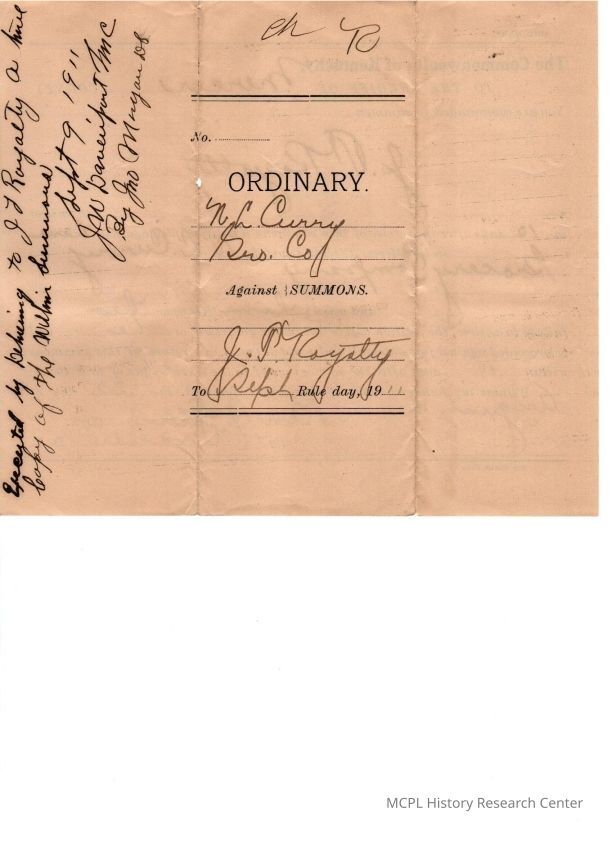 Executed by Delivering to J T Royalty a true
Copy of the Within Summons
Sept 9 1911
J W Davenport SMC
By Jno Morgan DS
No.
ORDINARY.
N. L. Curry
Gro. Co
Against } SUMMONS.
J. T. Royalty
To Sept Rule day, 1911
MCPL History Research Center